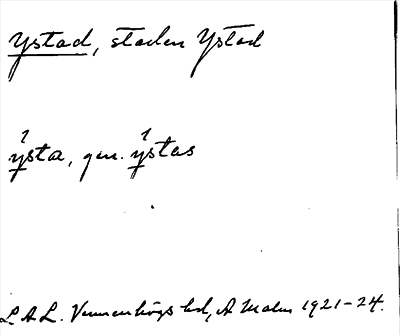 Ystad, staden Ystad
ýsta, gen. ýstas
L.A.L. Vemmenhögs hd, A Malm 1921-24.